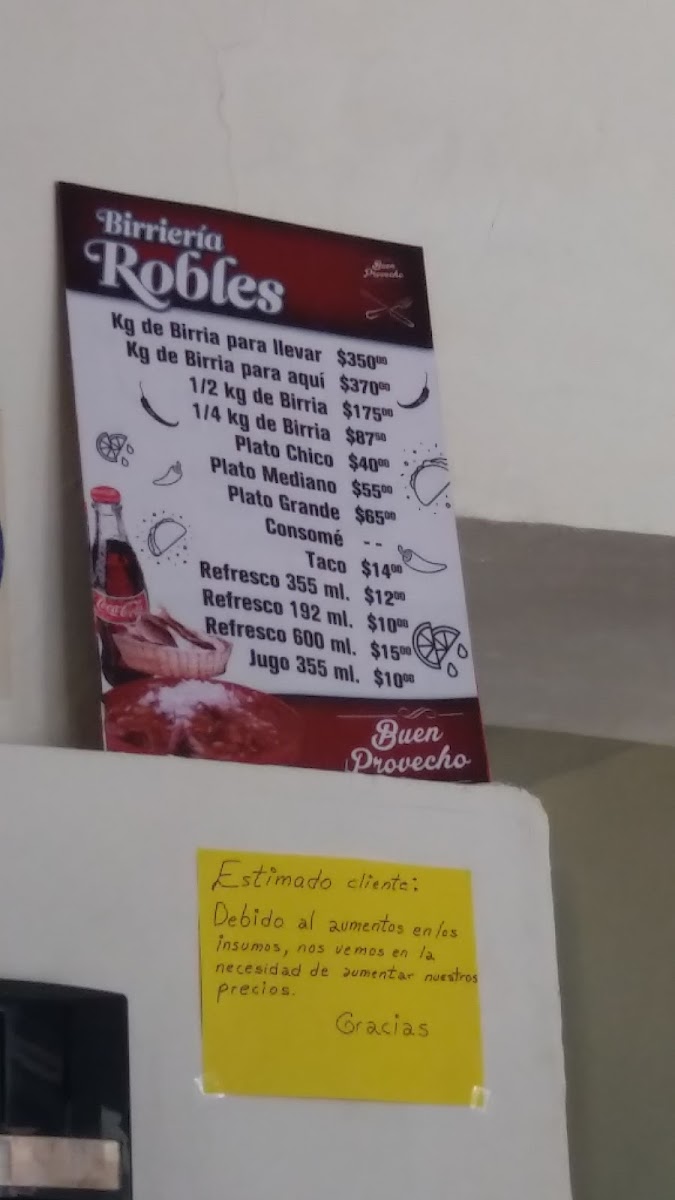 Birriería
Robles
Buen
Provecho
Kg de Birria para llevar $350⁰⁰
Kg de Birria para aquí $370⁰⁰
1/2 kg de Birria $175⁰⁰
1/4 kg de Birria $87⁵⁰
Plato Chico $40⁰⁰
Plato Mediano $55⁰⁰
Plato Grande $65⁰⁰
Consomé --
Taco $14⁰⁰
Refresco 355 ml. $12⁰⁰
Refresco 192 ml. $10⁰⁰
Refresco 600 ml. $15⁰⁰
Jugo 355 ml. $10⁰⁰
Coca-Cola
Buen
Provecho
Estimado cliente:
Debido al aumentos en los
insumos, nos vemos en la
necesidad de aumentar nuestros
precios.
Gracias